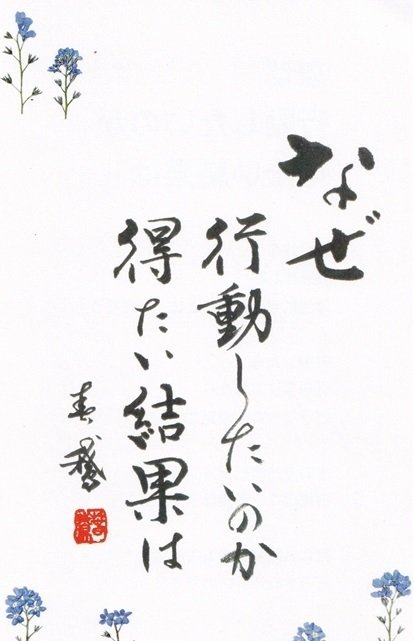 なぜ
行動したいのか
得たい結果は